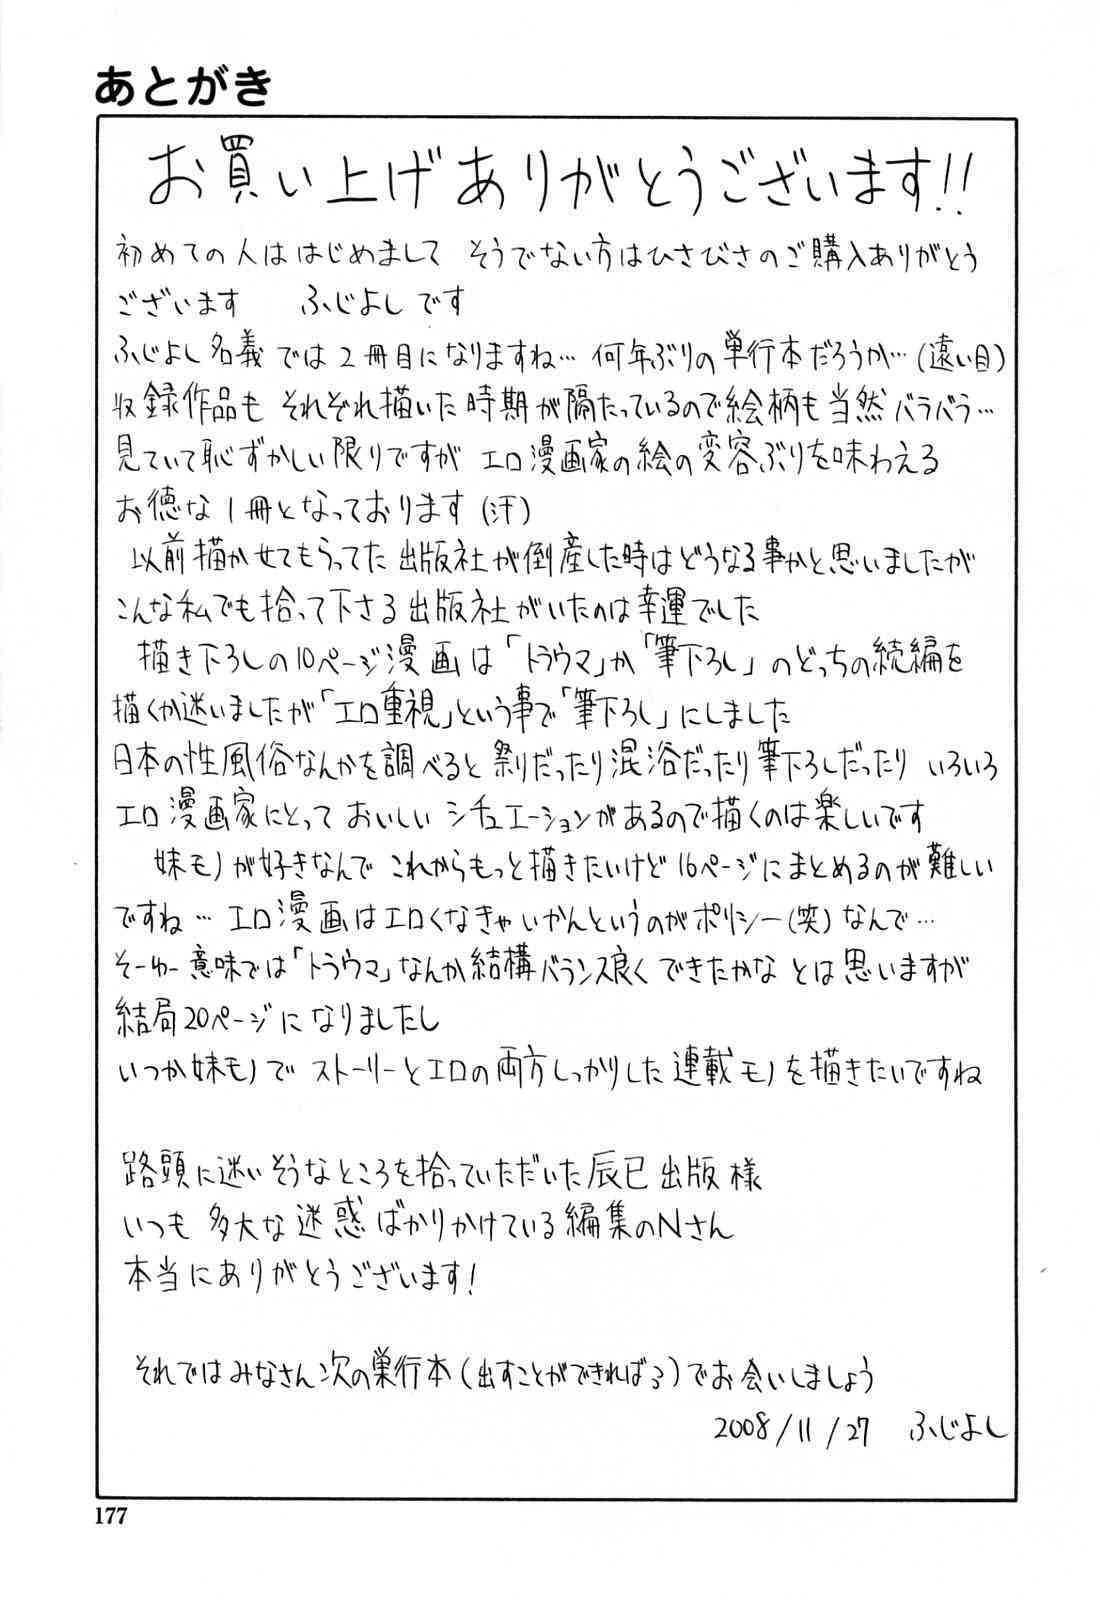 あとがき
お買い上げありがとうございます!!
初めての人ははじめまして そうでない方はひさびさのご購入ありがとう
ございます ふじよしです
ふじよし名義では2冊目になりますね… 何年ぶりの単行本だろうか…(遠い目)
収録作品も それぞれ描いた時期が隔たっているので絵柄も当然バラバラ…
見ていて恥ずかしい限りですが エロ漫画家の絵の変容ぶりを味わえる
お徳な1冊となっております(汗)
以前描かせてもらってた出版社が倒産した時はどうなる事かと思いましたが
こんな私でも拾って下さる出版社がいたのは幸運でした
描き下ろしの10ページ漫画は「トラウマ」か「筆下ろし」のどっちの続編を
描くか迷いましたが「エロ重視」という事で「筆下ろし」にしました
日本の性風俗なんかを調べると祭りだったり混浴だったり筆下ろしだったり いろいろ
エロ漫画家にとって おいしい シチュエーションがあるので描くのは楽しいです
妹モノが好きなんで これからもっと描きたいけど 16ページにまとめるのが難しい
ですね… エロ漫画はエロくなきゃいかんというのがポリシー(笑)なんで…
そーゆー意味では「トラウマ」なんか結構バランス良くできたかな とは思いますが
結局20ページになりましたし
いつか妹モノで ストーリーとエロの両方しっかりした連載モノを描きたいですね
路頭に迷いそうなところを拾っていただいた辰巳出版様
いつも多大な迷惑ばかりかけている編集のNさん
本当にありがとうございます!
それではみなさん次の単行本(出すことができればる)でお会いしましょう
2008/11/27 ふじよし
177